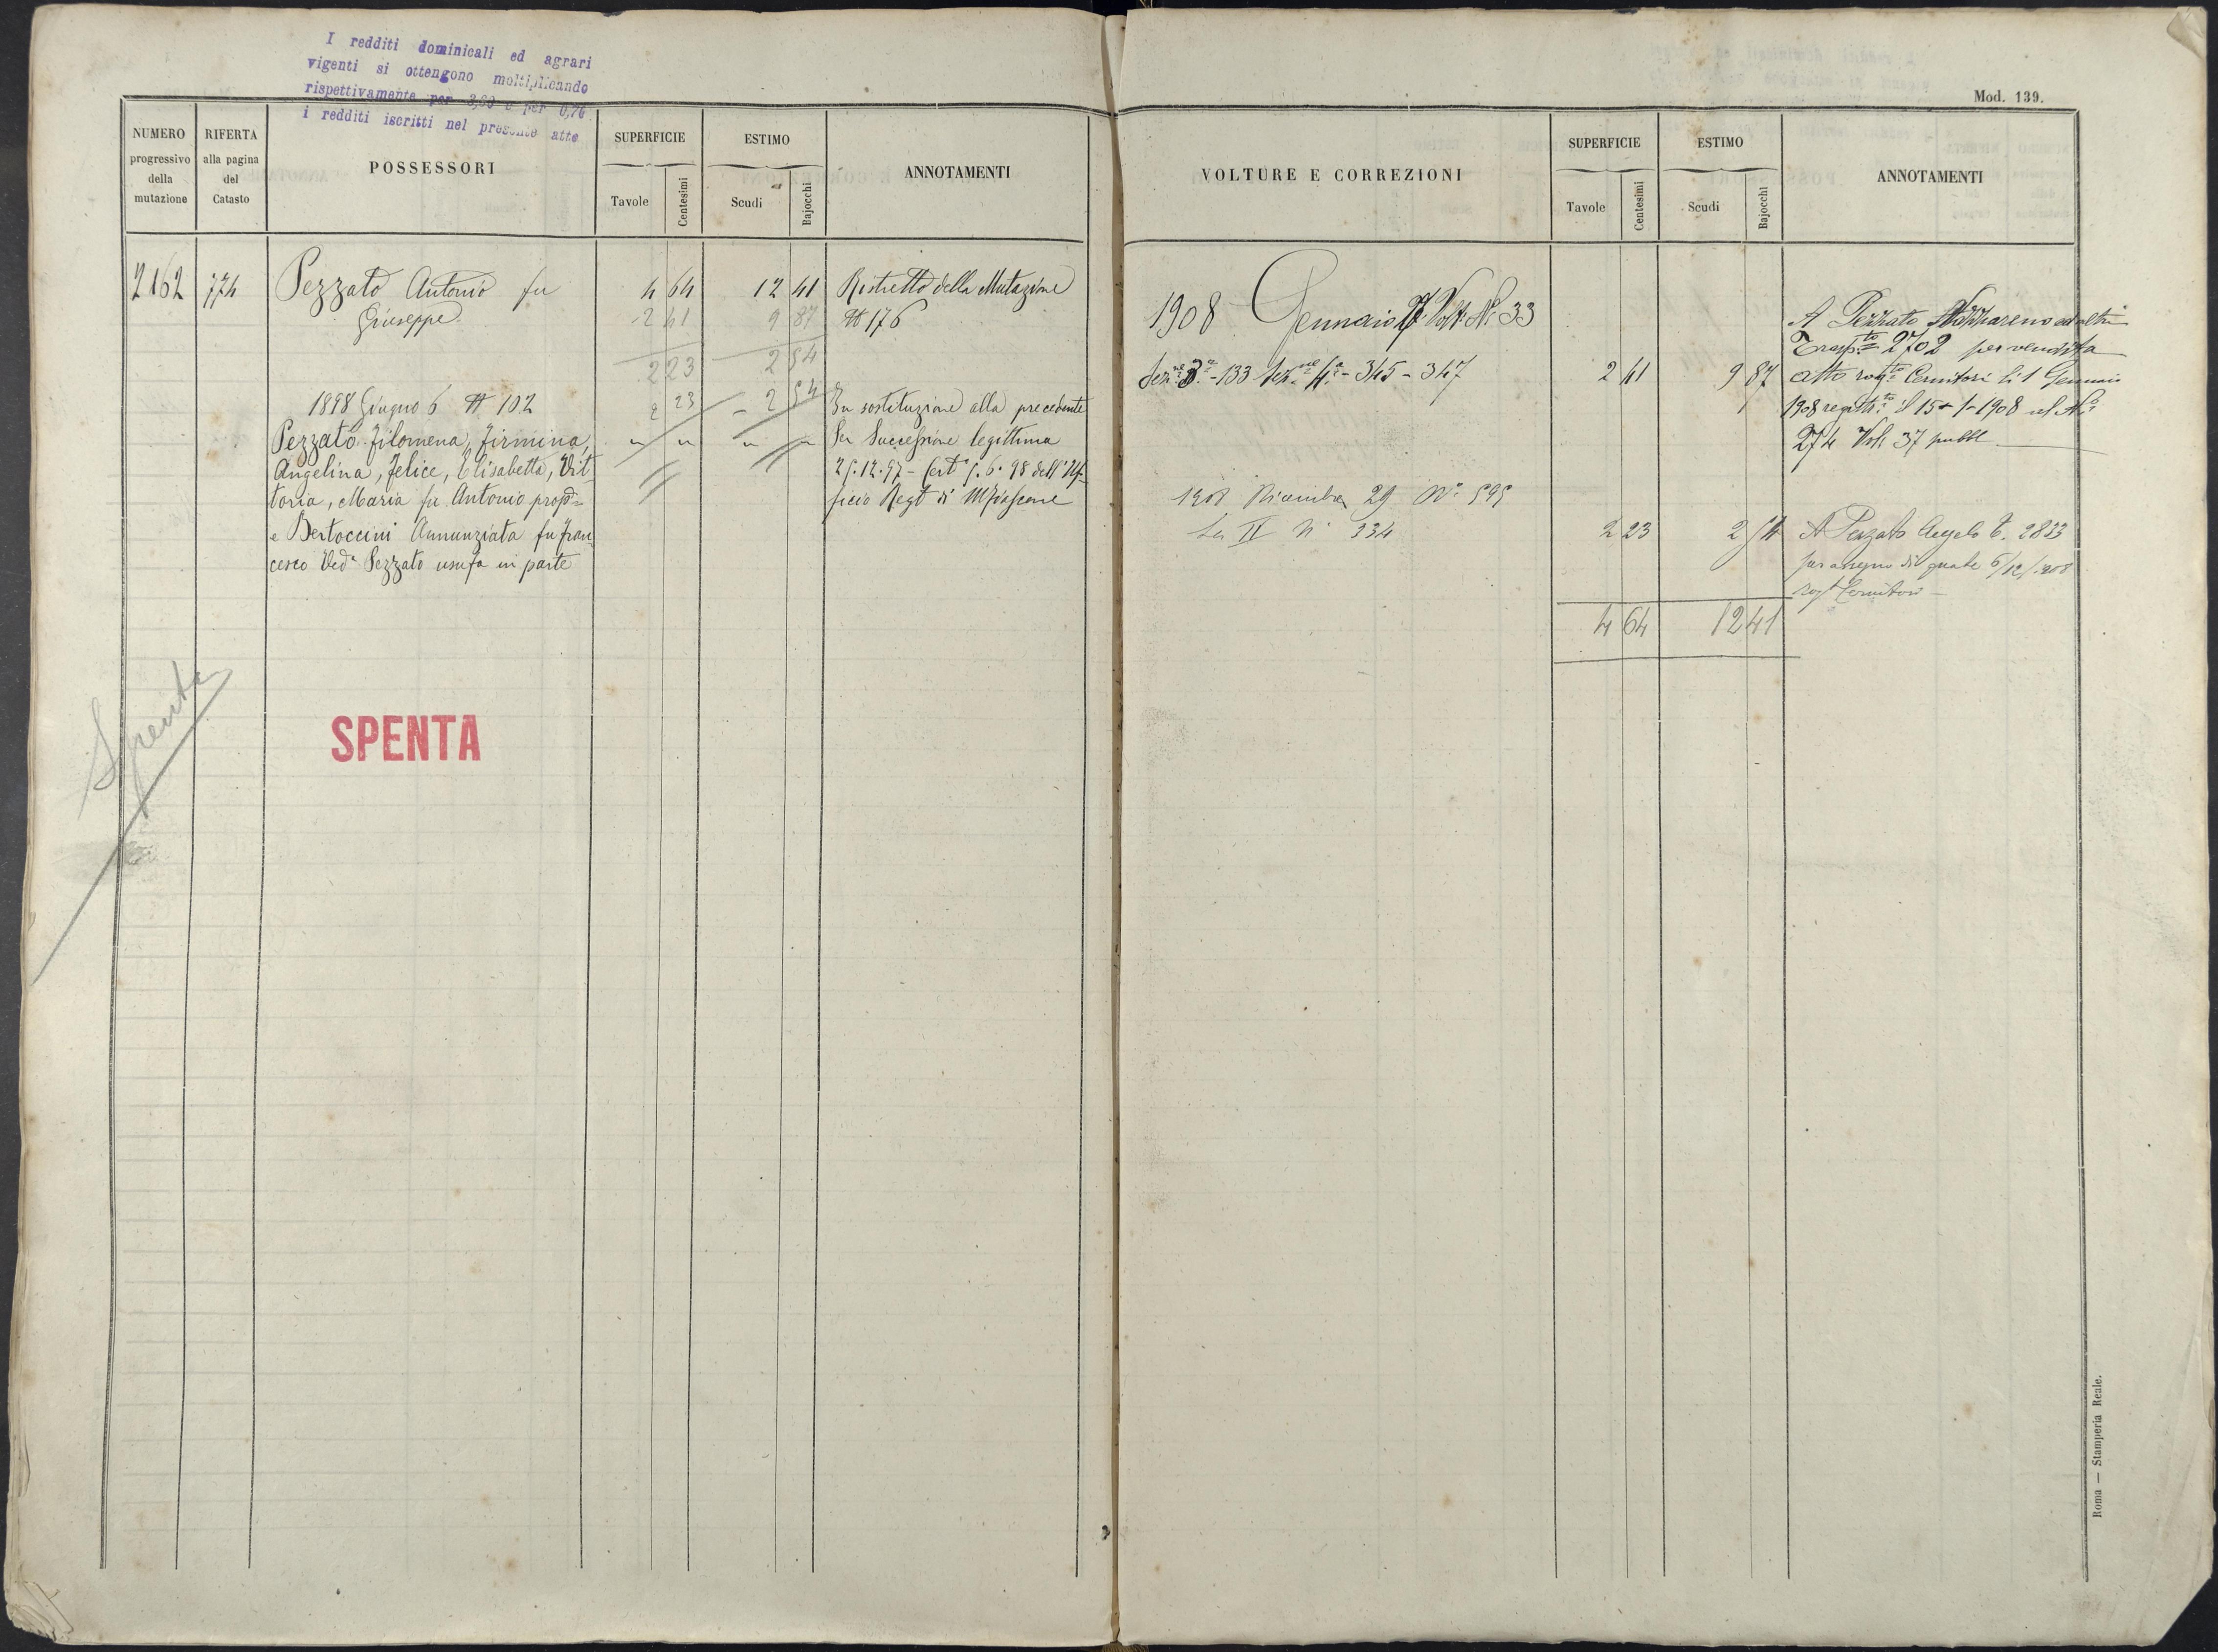 I redditi dominicali ed agrari
vigenti si ottengono moltiplicando
rispettivamente per 3,60 e per 0,76
i redditi iscritti nel presente atto
NUMERO
progressivo
della
mutazione
RIFERTA
alla pagina
del
Catasto
POSSESSORI
SUPERFICIE
Tavole
Centesimi
ESTIMO
Scudi
Bajocchi
ANNOTAMENTI
2162 174 Pezzato Antonio fu 4 64 12 41 Ristretto della Mutazione
Giuseppe 2 41 9 87 № 176
2 23 2 54
1898 Giugno 6 № 102 2 23 2 54 In sostituzione alla precedente
Pezzato Filomena, Firmina, " " " " Per Successione legittima
Angelina, Felice, Elisabetta, Vit
25.12.97 - Cert. 5.6.98 dell'Uf-
toria, Maria fu Antonio propri
ficio Regt di Mfiascone
e Bertoccini Annunziata fu Fran
cesco Ved.a Pezzato usufa in parte
Spenta
SPENTA
Mod. 139.
VOLTURE E CORREZIONI
SUPERFICIE
Tavole
Centesimi
ESTIMO
Scudi
Bajocchi
ANNOTAMENTI
1908 Gennaio Volt. N. 33
A Pezzato Nazzareno ed altri
Trasp.to 2702 per vendita
Sez.ne 3.a - 133 Sez.ne 4.a - 345 - 347 2 41 9 87 atto rog.to Cernitori li 1 Gennaio
1908 registr.to il 15-1-1908 al N.o
274 Vol. 37 pubbl.
1908 Dicembre 29 N.o 595
Sez II N. 334 2 23 2 54 A Pezzato Angelo t. 2833
per assegno di quote 6/12/1908
Rog.t Cernitori
4 64 12 41
Roma — Stamperia Reale.